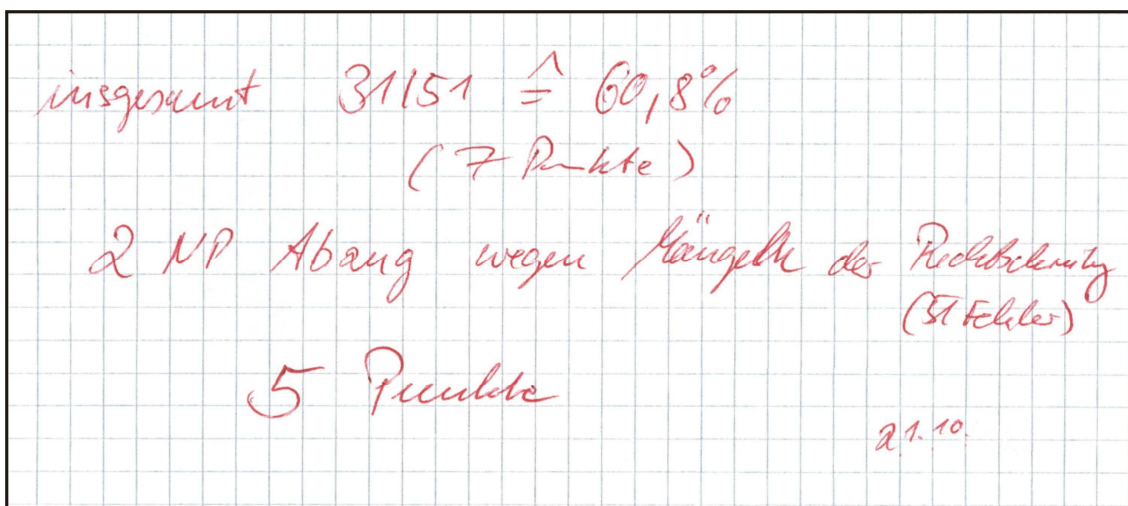 insgesamt 31/51 ≙ 60,8%
(7 Punkte)
2 NP Abzug wegen Mängeln der Rechtschreibg
(51 Fehler)
5 Punkte
21.10.